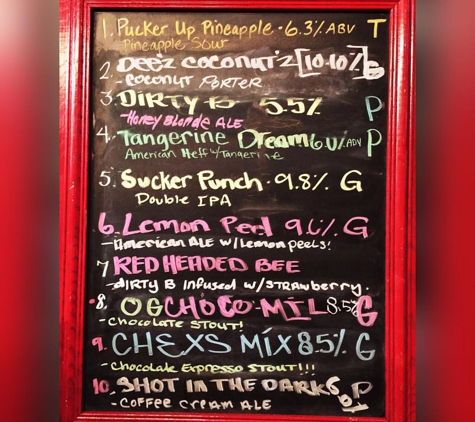 1. Pucker Up Pineapple - 6.3% ABV T
Pineapple Sour
2. Deez Coconut'z [10.10%] G
- Coconut Porter
3. Dirty B 5.5% P
- Honey Blonde Ale
4. Tangerine Dream 6.0% ABV P
American Heff w/Tangerine
5. Sucker Punch - 9.8% G
Double IPA
6. Lemon Peel 9.0% G
- American Ale w/Lemon peels!
7 Red Headed Bee
- Dirty B Infused w/Strawberry.
8. OG Choco-Mil 8.5% G
- Chocolate Stout!
9. Chexs Mix 8.5% G
- Chocolate Expresso Stout!!!
10. Shot in the Dark P
- Coffee Cream Ale